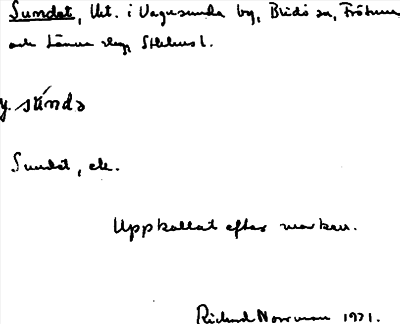 Sundet, lht. i Vagnsunda by, Blidö sn, Frötuna
och Länna skg, Sthlms l.
y. sú́ndə
Sundet, ek.
Uppkallat efter marken.
Richard Norrman 1921.